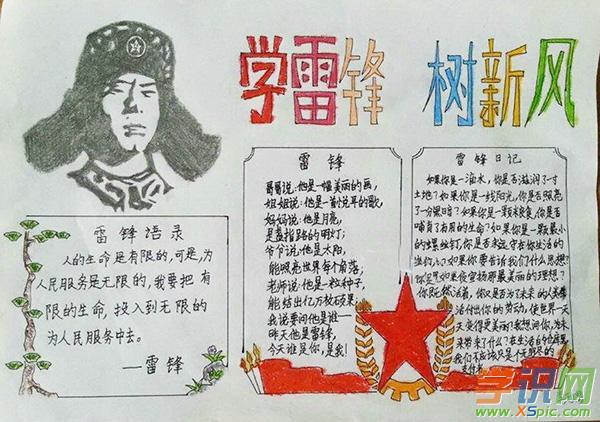 学雷锋 树新风
雷锋语录
人的生命是有限的,可是,为
人民服务是无限的,我要把有
限的生命,投入到无限的
为人民服务中去。
—雷锋
雷锋
哥哥说:他是一幅美丽的画,
姐姐说:他是一首悦耳的歌,
妈妈说:他是月亮,
是盏指路的明灯;
爷爷说:他是太阳,
能照亮世界每个角落;
老师说:他是一粒种子,
能结出亿万枚硕果;
我说要问他是谁—
昨天他是雷锋,
今天谁是你,是我!
雷锋日记
如果你是一滴水,你是否滋润了一寸
土地?如果你是一线阳光,你是否照亮
了一分黑暗?如果你是一颗粮食,你是否
哺育了有用的生命?如果你是一颗最小
的螺丝钉,你是否永远守在你生活的
岗位上?如果你要告诉我们什么思想?
你是否在日夜宣扬那最美丽的理想?
你既然活着,你又是否为了未来的人类
活付出你的劳动,使世界一天
天变得更美丽?我想问你,为未
来带来了什么?在生活的仓库里,
我们不应该只是个无穷尽的
支付者
学识网
www.XSpic.com